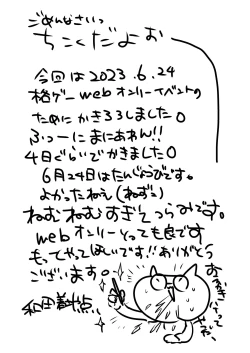 ごめんなさいっ
ちこくだよぉ
今回は2023.6.24
格ゲーwebオンリーイベントの
ためにかきろろしました。
ふつーにまにあれん!!
4日ぐらいでかきました。
6月24日はたんじょうびです。
よかったねぇ(ねずっ)
ねむねむすぎてつらみです。
webオンリーとっても良です
もってやってほしいです!!ありがとう
ございます。